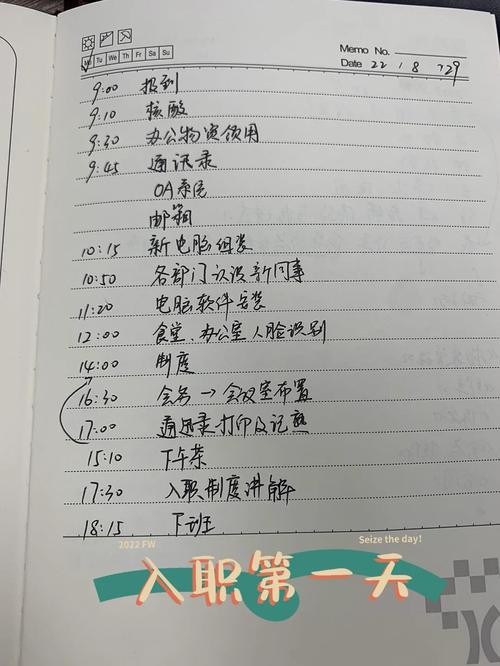 Memo No.
Mo Tu We Th Fr Sa Su
Date 22 / 8 / 29
9:00 报到
9:10 核酸
9:30 办公物资领用
9:45 通讯录
OA系统
邮箱
10:15 新电脑组装
10:50 各部门认识新同事
11:20 电脑软件安装
12:00 食堂、办公室人脸识别
14:00 制度
16:30 会务→会议室布置
17:00 通讯录打印及记熟
15:10 下午茶
17:30 入职制度讲解
18:15 下班
2022 FW
Seize the day!
入职第一天